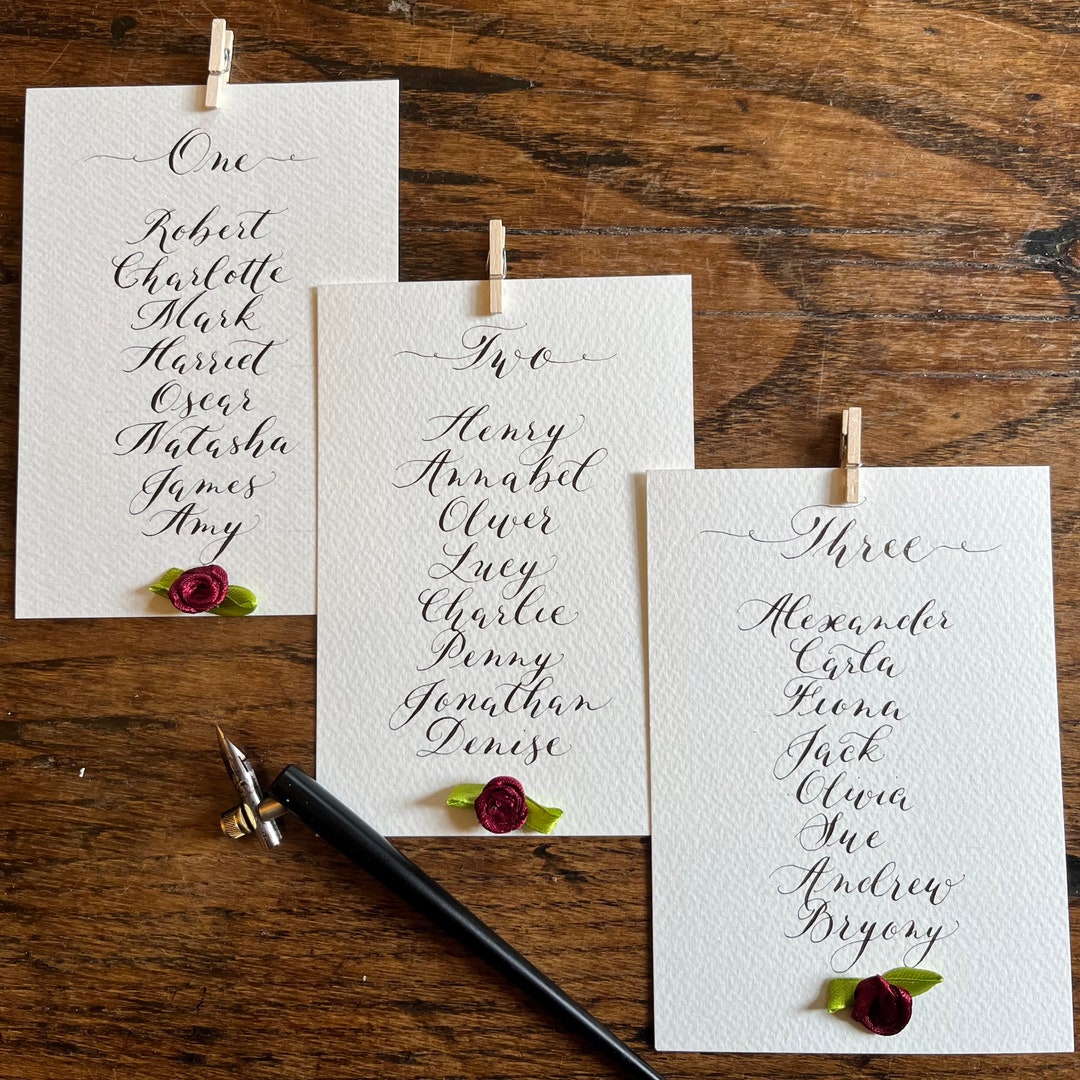 One
Robert
Charlotte
Mark
Harriet
Oscar
Natasha
James
Amy
Two
Henry
Annabel
Oliver
Lucy
Charlie
Penny
Jonathan
Denise
Three
Alexander
Carla
Fiona
Jack
Olivia
Sue
Andrew
Bryony